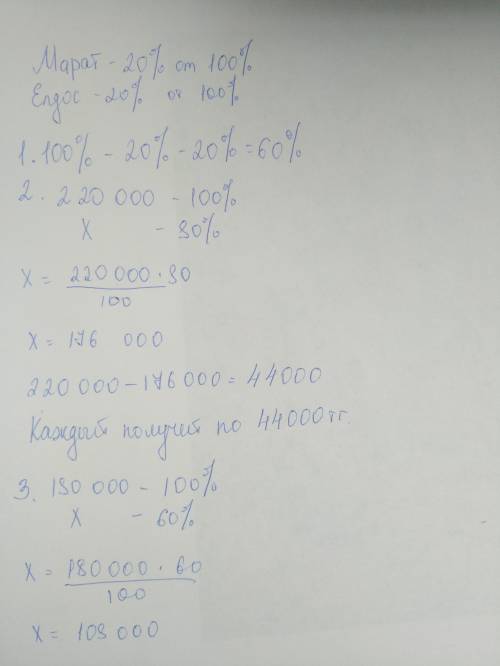 Марат - 20% от 100%
Елдос - 20% от 100%
1. 100% - 20% - 20% = 60%
2. 220 000 - 100%
X - 80%
X = 220 000 · 80
100
X = 176 000
220 000 - 176 000 = 44000
Каждый получет по 44000 тг.
3. 180 000 - 100%
X - 60%
X = 180 000 · 60
100
X = 108 000